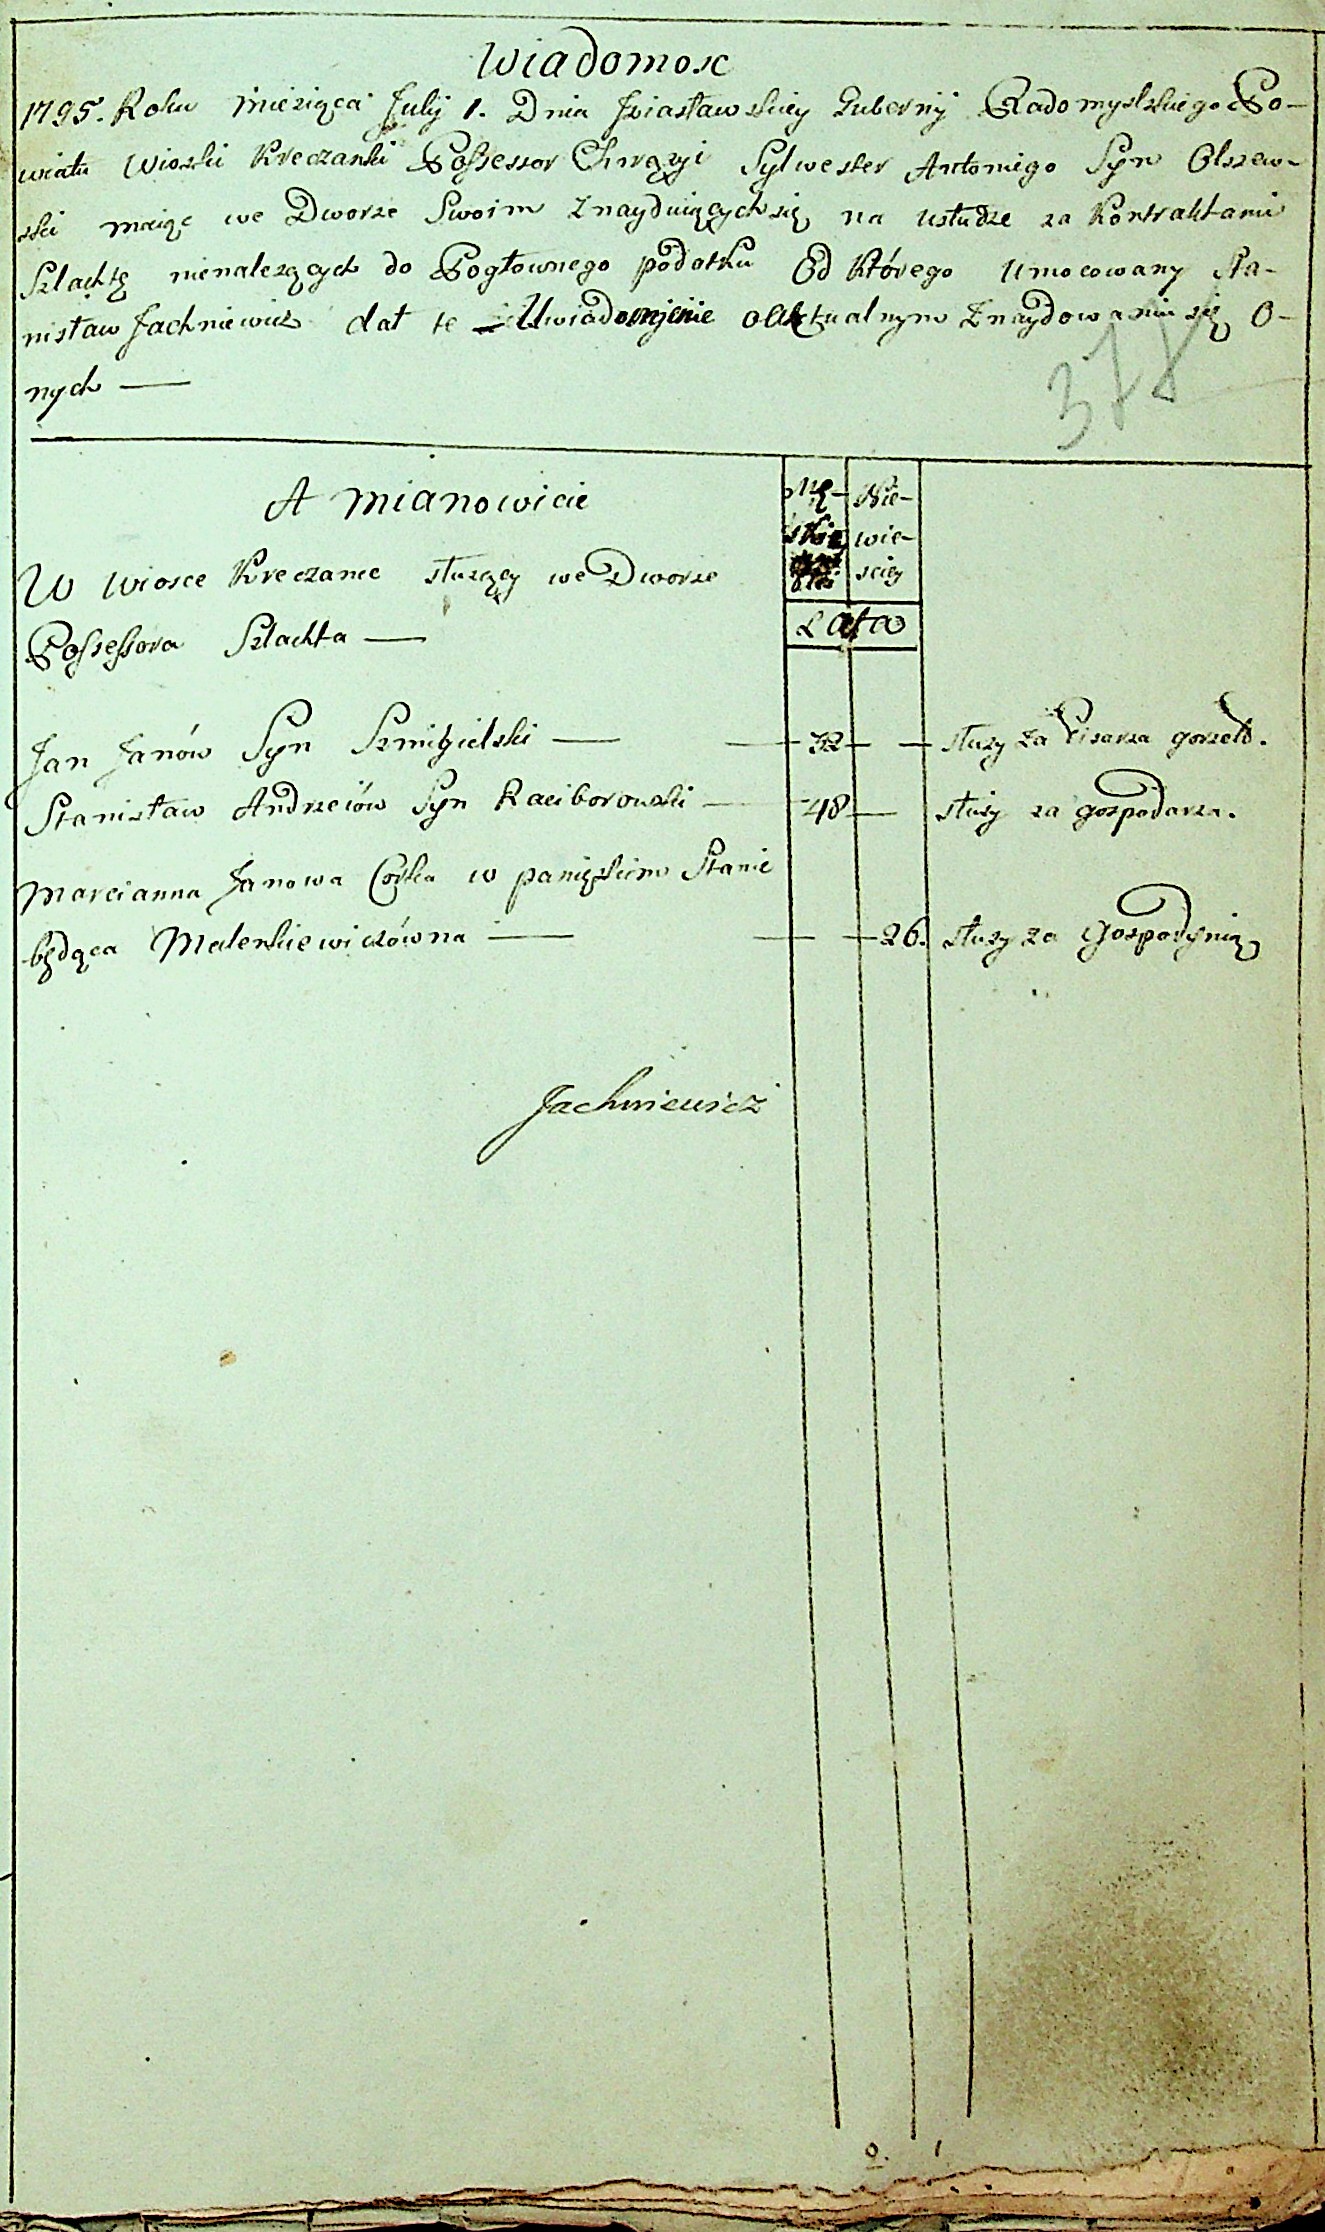 Wiadomosc
1795. Roku Miesiąca July 1. Dnia Iziasławskiey Guberny Radomyslskiego Po-
wiatu Wioski Kreczanki Possessor Chrąży Sylwester Antoniego Syn Olszew-
ski maiąc we Dworze Swoim Znayduiących się na usłudze za Kontraktami
Szlachtę nienalezących do Pogłownego podatku Od Którego Umocowany Sta-
nisław Jachniewicz dał te Uwiadomienie o Aktualnym Znaydowaniu się O-
nych —
378
A Mianowicie
Mę- Nie-
skiey wie-
sciey
Lata
W Wiosce Kreczance słuzący we Dworze
Possessora Szlachta —
Jan Janów Syn Szmigielski — — 32 — — słuzy za Pisarza gorzeln.
Stanisław Andrzeiów Syn Raciborowski — 48 — słuzy za gospodarza.
Marcianna Janowa Corka w panięskim Stanie
będąca Malenkiewiczówna — — — 26. słuzy za Gospodynią
Jachniewicz